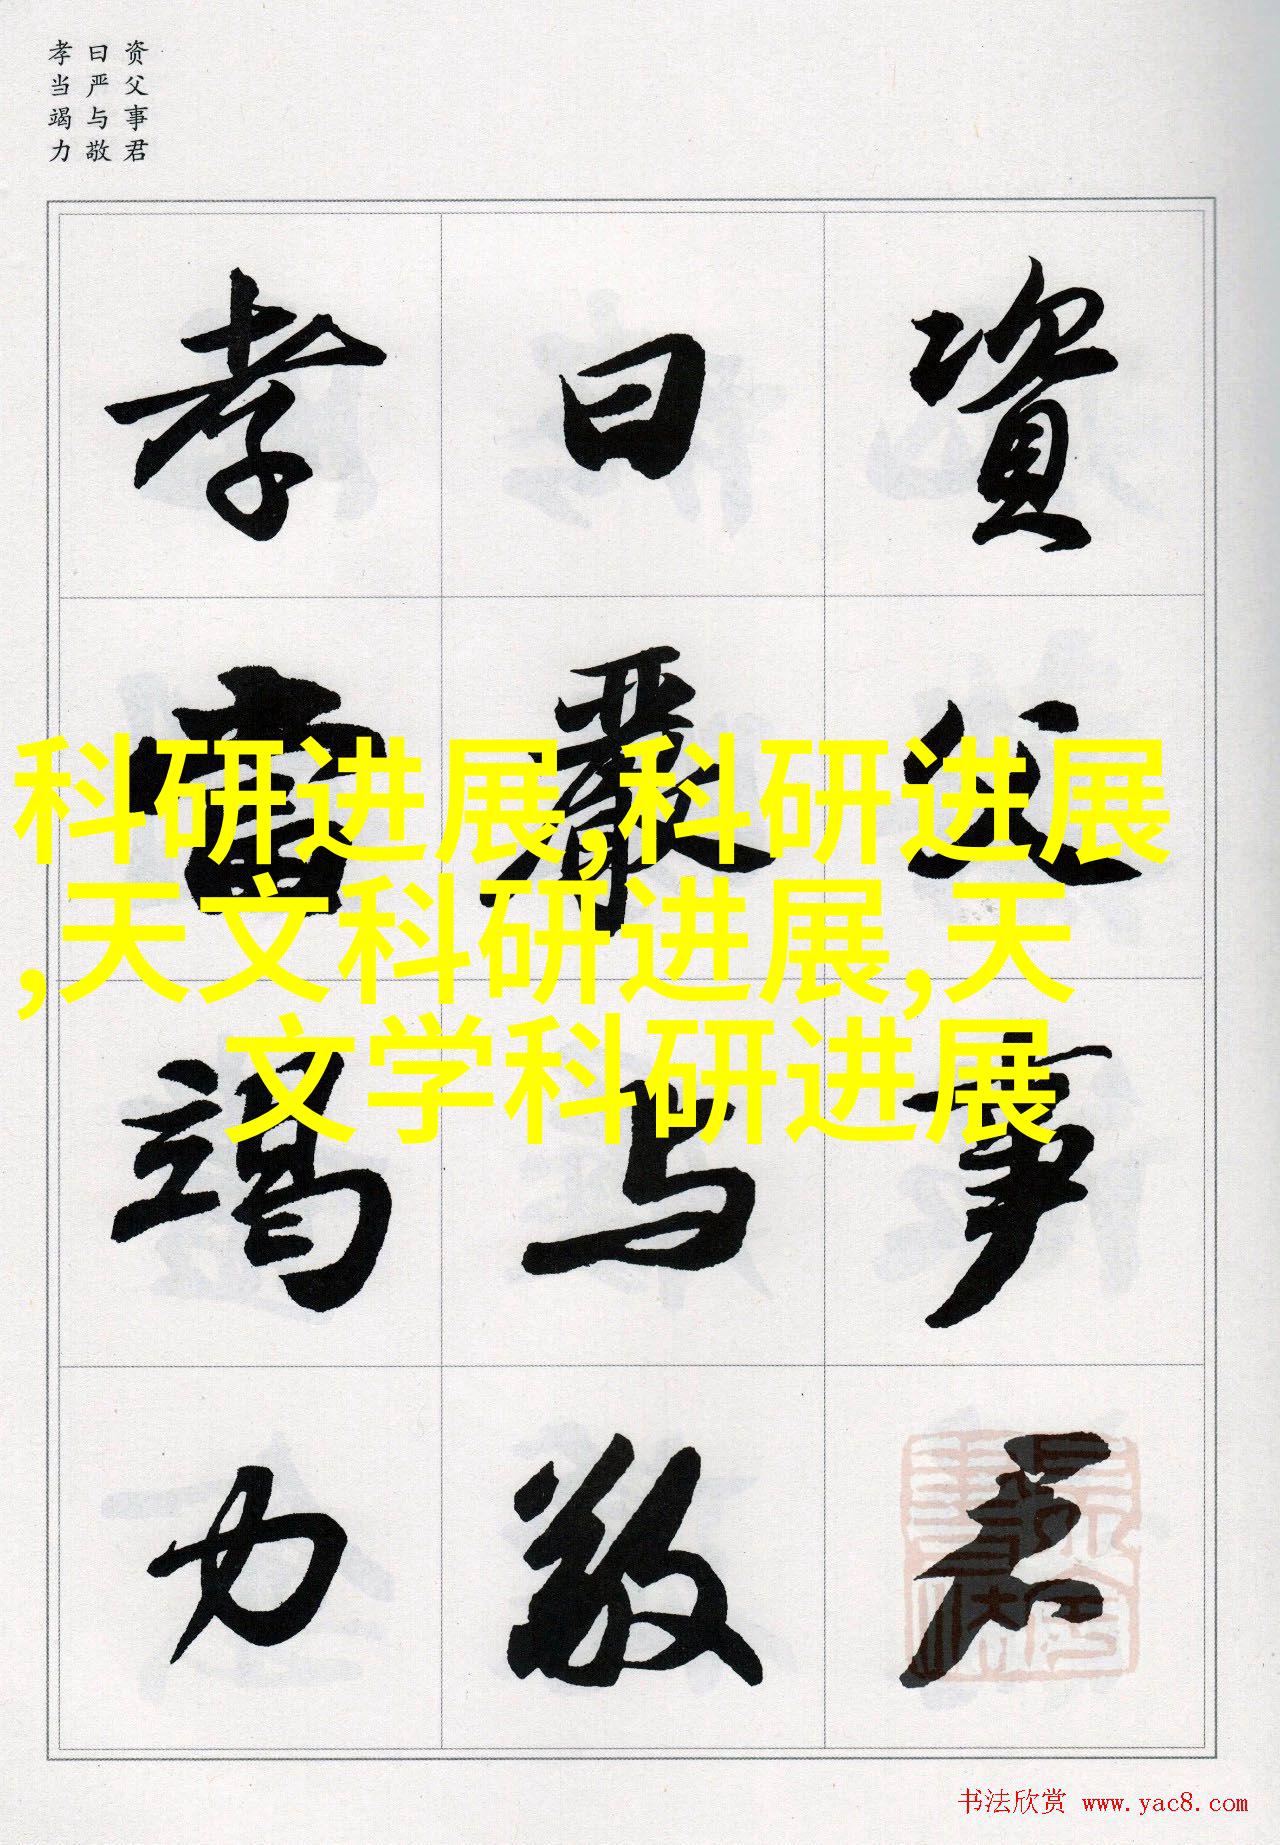 资父事君
曰严与敬
孝当竭力
資父事君
曰嚴与敬
孝當竭力
科研进展,科研进展
,天文科研进展,天
文学科研进展
书法欣赏 www.yac8.com